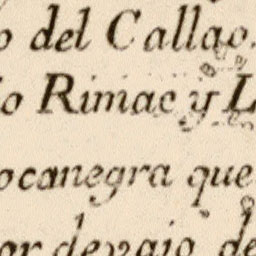 o del Callao.
o Rimac y L
ocanegra que
or devajo de